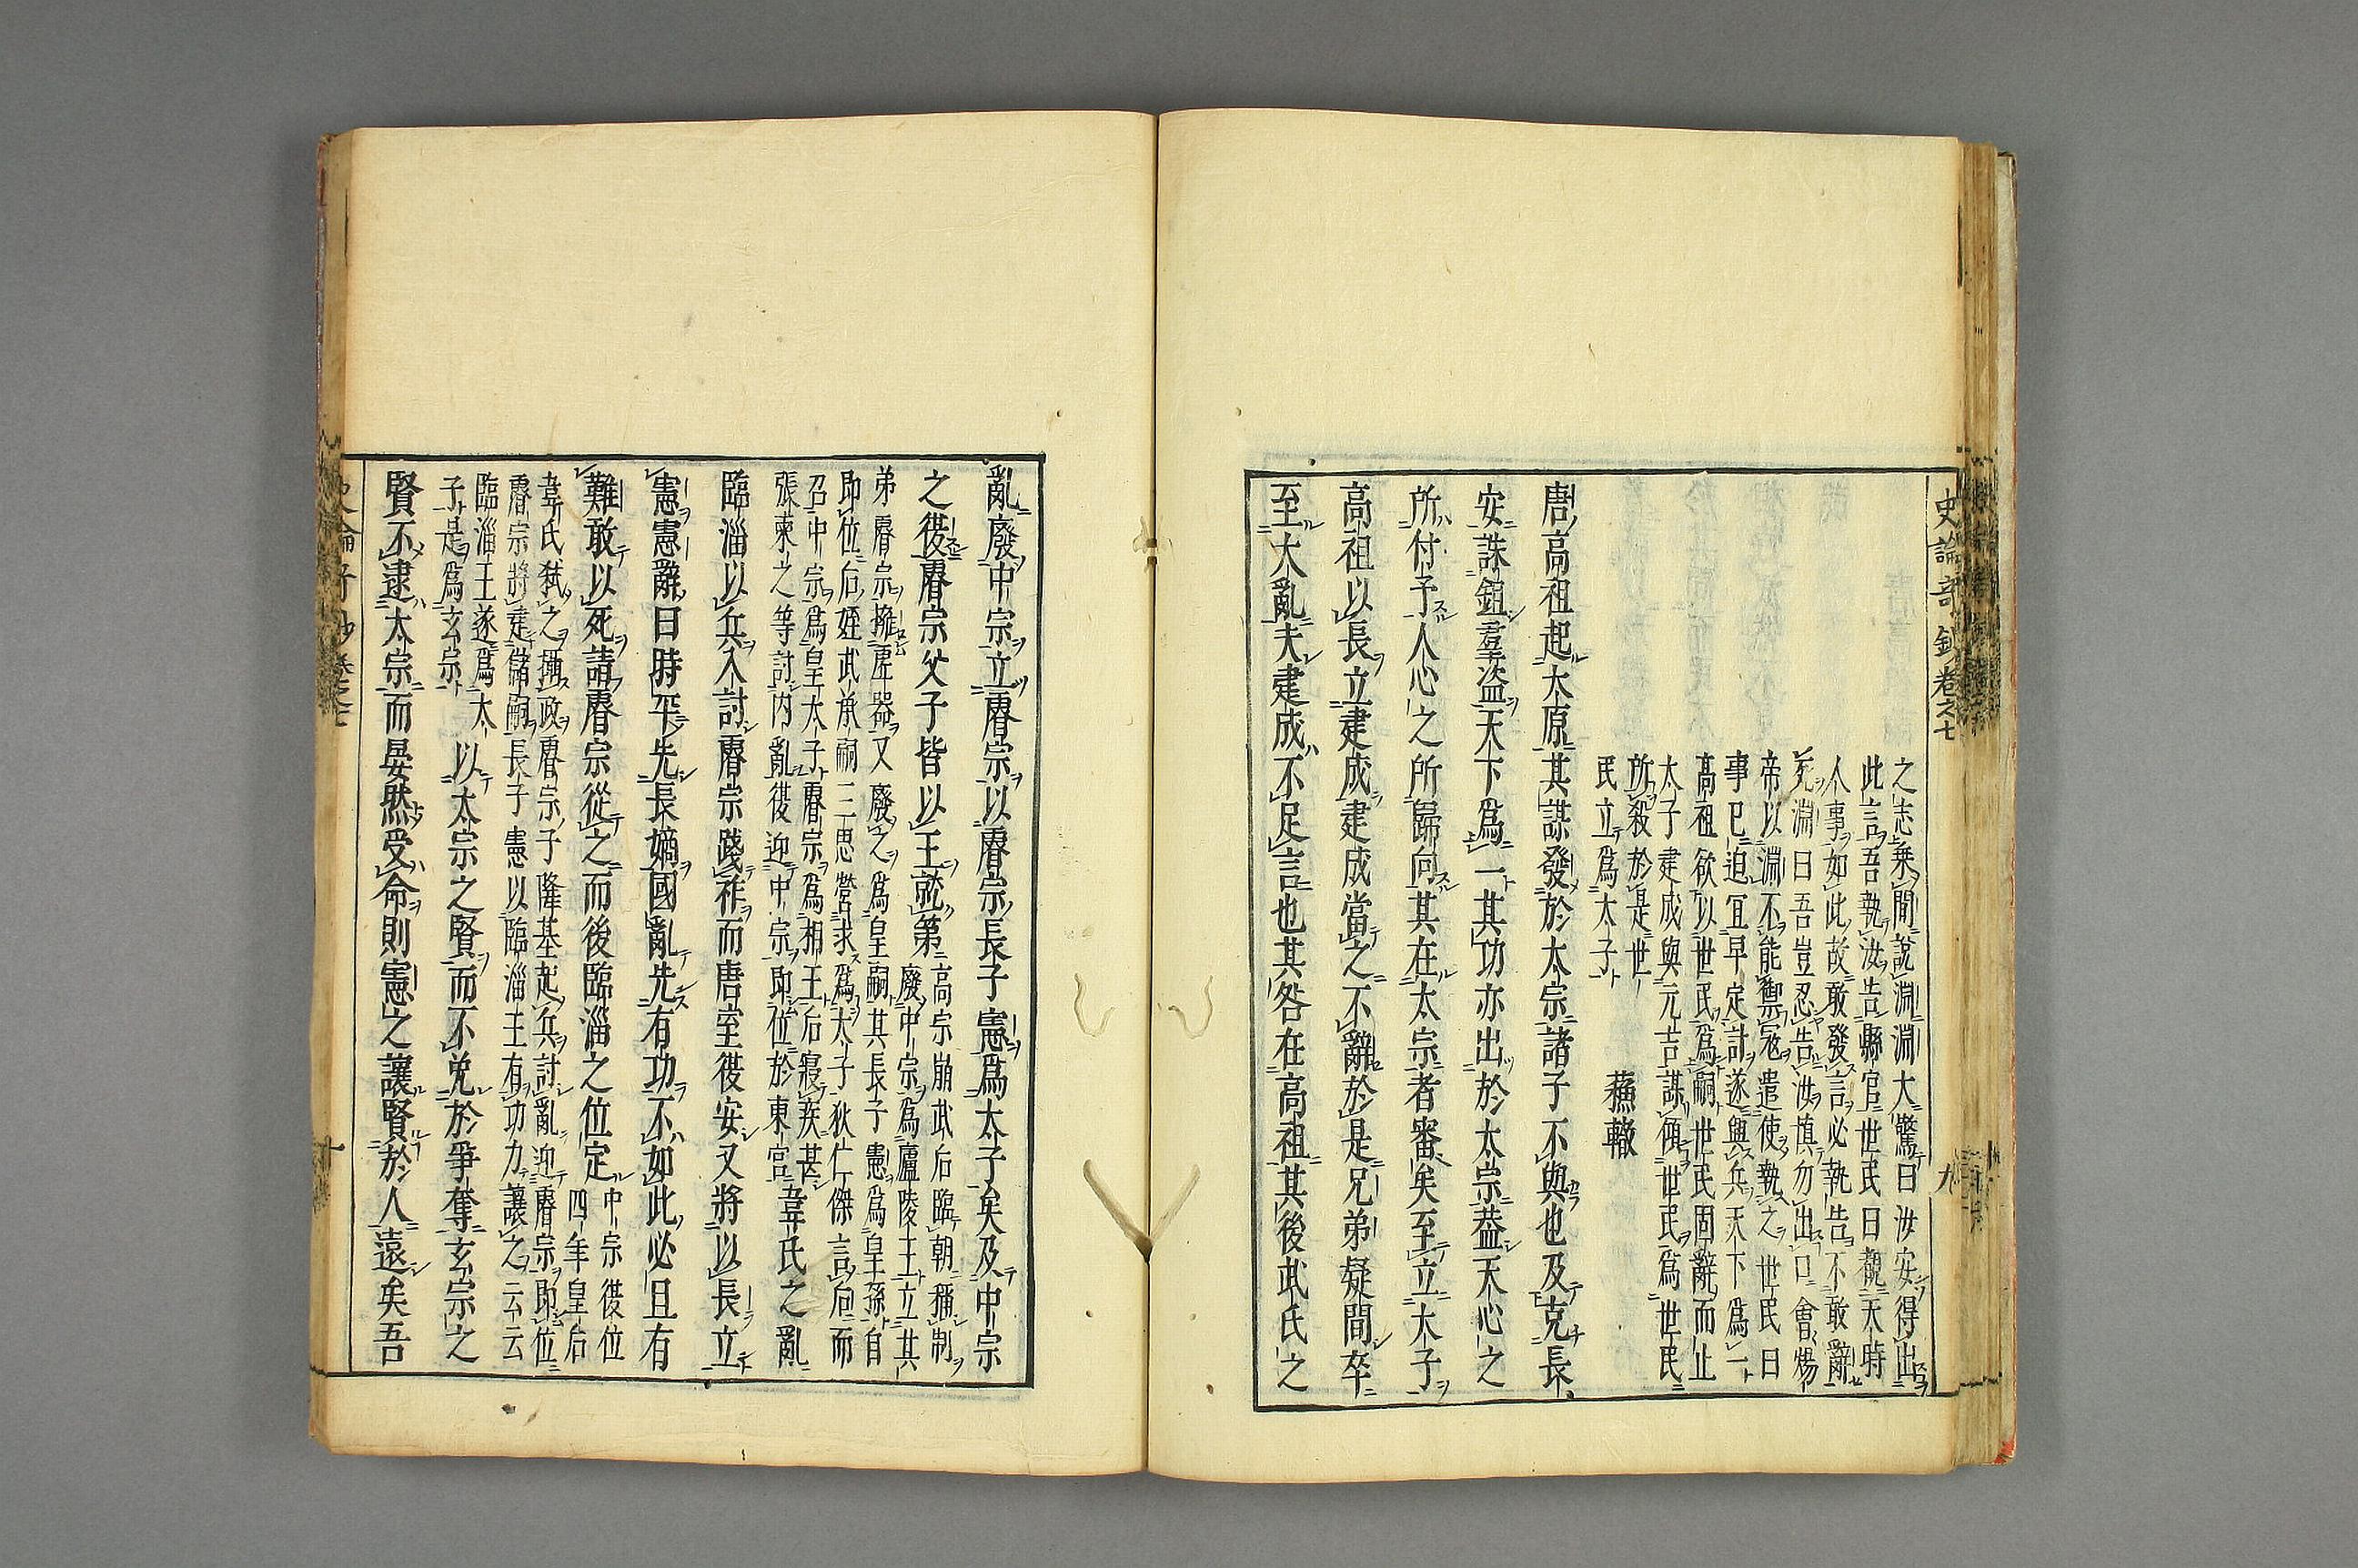 史論奇鈔卷之七 九
之志乗間説淵淵大驚曰汝安得出
此言吾執汝告縣官世民曰觀天時
人事如此故敢發言必執告不敢辭
死淵曰吾豈忍告汝慎勿出口會煬
帝以淵不能禦冦遣使執之世民曰
事已迫宜早定計遂與兵天下爲一
高祖欲以世民爲嗣世民固辭而止
太子建成與元吉謀傾世民爲世民
所殺於是世
民立爲太子
蘓轍
唐高祖起太原其謀發於太宗諸子不與也及克長
安誅鉏羣盗天下爲一其功亦出於太宗葢天心之
所付予人心之所歸向其在太宗者審矣至立太子
高祖以長立建成建成當之不辭於是兄弟疑間卒
至大亂夫建成不足言也其咎在高祖其後武氏之
亂廢中宗立睿宗以睿宗長子憲爲太子矣及中宗
之復睿宗父子皆以王就第
高宗崩武后臨朝稱制
廢中宗爲廬陵王立其
弟睿宗擁虚器又廢之爲皇嗣其長子憲爲皇孫自
即位后姪武承嗣三思營求爲太子狄仁傑言之而
召中宗爲皇太子睿宗爲相王后寢疾甚
張柬之等討内亂復迎中宗即位於東宮
韋氏之亂
臨淄以兵入討睿宗踐祚而唐室復安又將以長立
憲憲辭曰時平先長嫡國亂先有功不如此必且有
難敢以死請睿宗從之而後臨淄之位定
中宗復位
四年皇后
韋氏弑之攝政睿宗子隆基起兵討亂迎睿宗即位
睿宗將建儲嗣長子憲以臨淄王有功力讓之云云
臨淄王遂爲太
子是爲玄宗
以太宗之賢而不免於爭奪玄宗之
賢不逮太宗而晏然受命則憲之讓賢於人遠矣吾